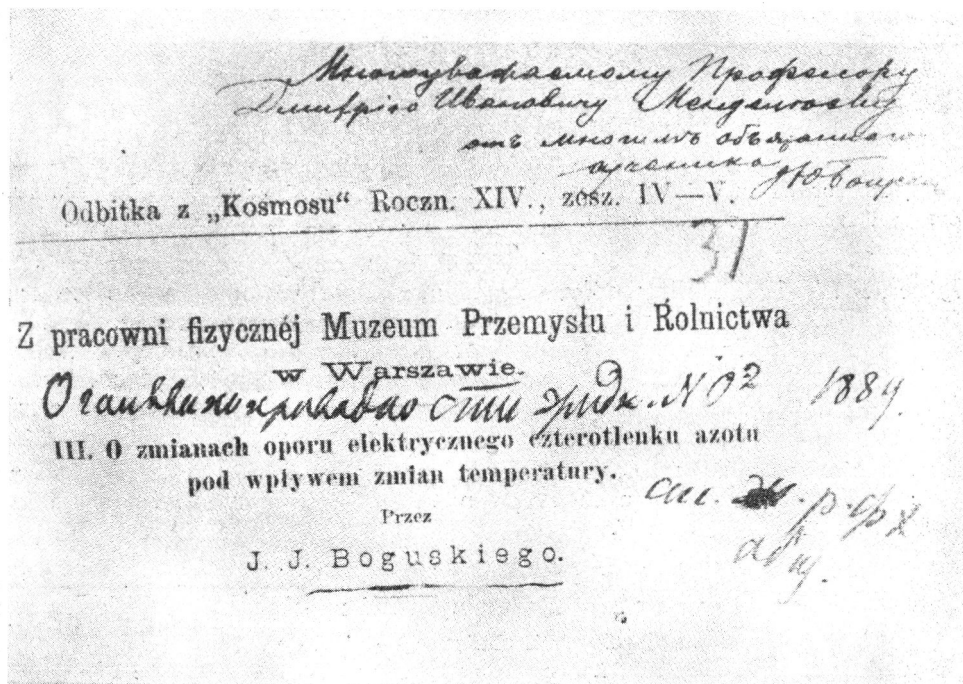 Многоуважаемому Профессору
Дмитрію Ивановичу Менделѣеву
отъ многимъ обязаннаго
ученика
Odbitka z „Kosmosu“ Roczn. XIV., zesz. IV—V.
31
Z pracowni fizycznéj Muzeum Przemysłu i Rolnictwa
w Warszawie.
О NO² 1889.
III. O zmianach oporu elektrycznego czterotlenku azotu
pod wpływem zmian temperatury.
Przez
J. J. Boguskiego.